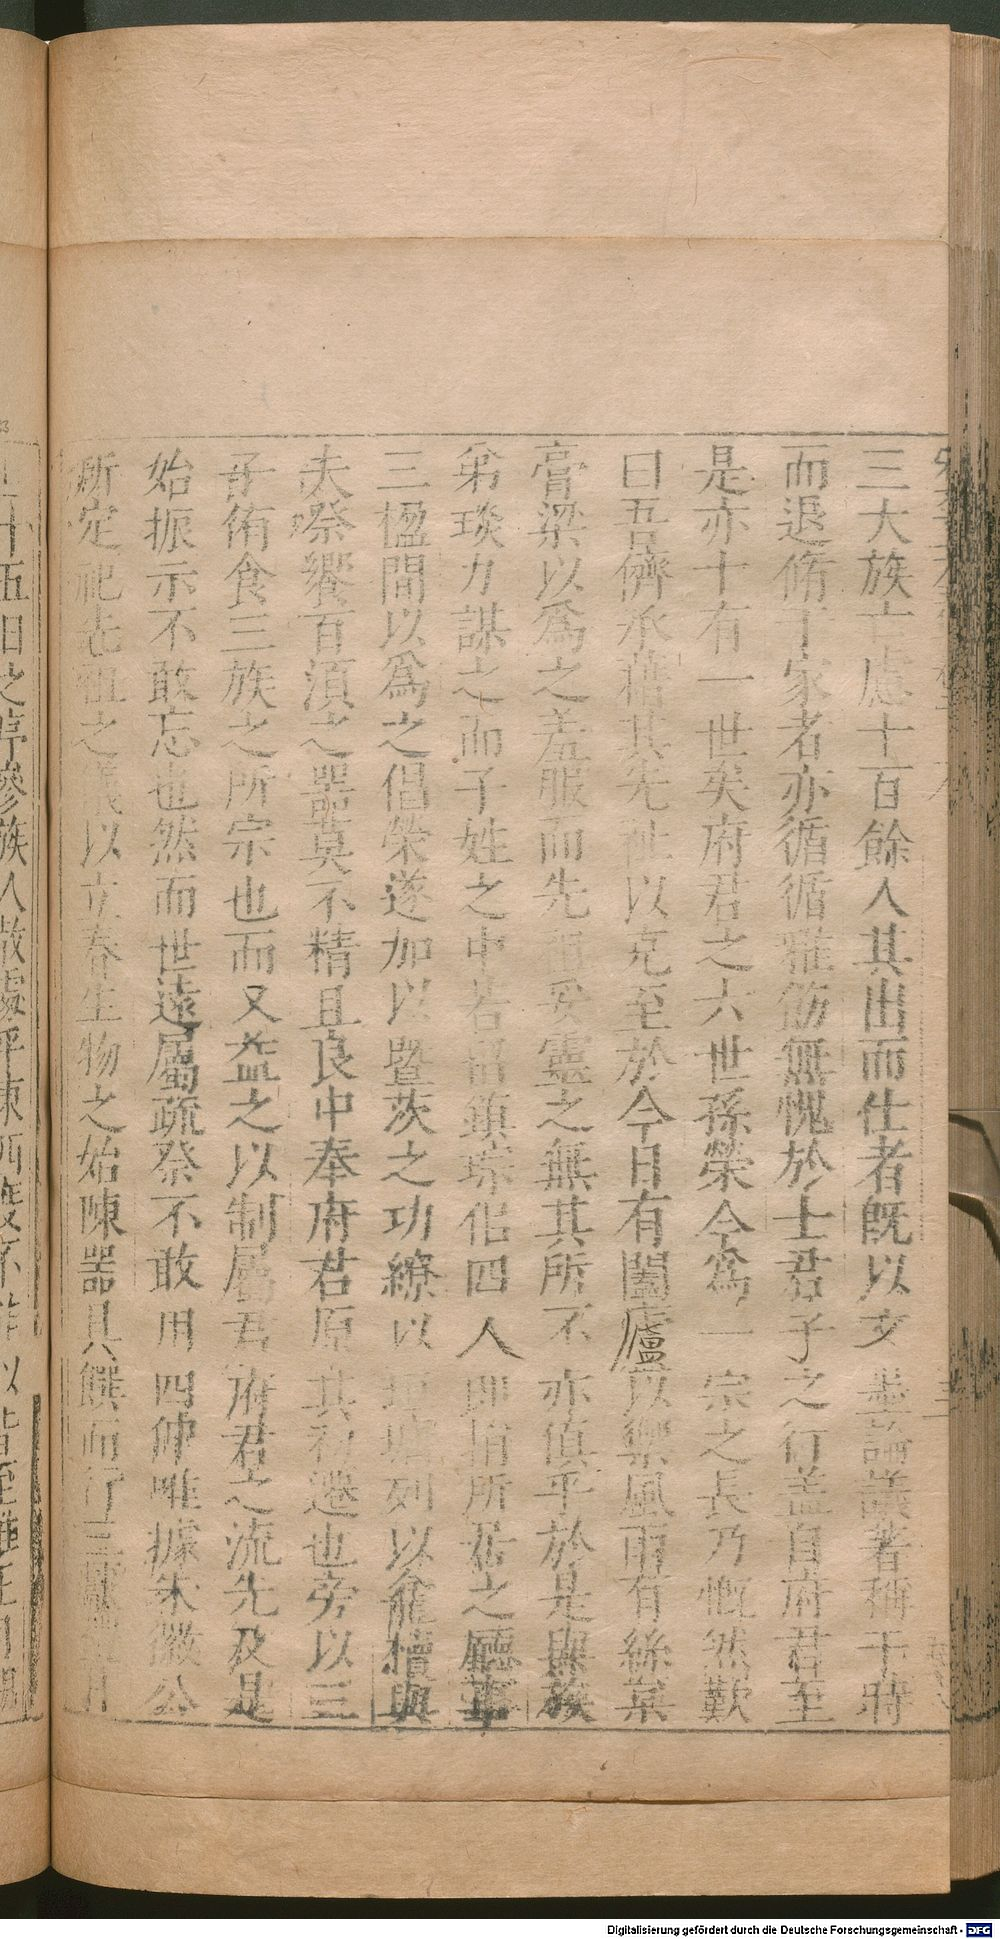 三大族亡慮十百餘人其出而仕者既以文墨論議著稱于時
而退脩于家者亦循循雅飭無愧於士君子之行盖自府君至
是亦十有一世矣府君之六世孫榮今為一宗之長乃慨然歎
曰吾儕承藉其先祉以克至於今日有閭廬以禦風雨有絲枲
膏粱以為之羞服而先祖妥靈之無其所不亦傎乎於是與族
弟琰力謀之而子姓之中若紹鎮琮侣四人即捐所居之廳事
三楹間以為之倡榮遂加以暨茨之功繚以垣墉列以龕櫝與
夫祭饗百湏之器莫不精且良中奉府君原其初遷也旁以三
子侑食三族之所宗也而又益之以制屬君府君之流先及是
始振示不敢忘也然而世遠屬疏祭不敢用四仲唯據朱徽公
所定祀先祖之義以立春生物之始陳器具饌而行三獻
Digitalisierung gefördert durch die Deutsche Forschungsgemeinschaft - DFG